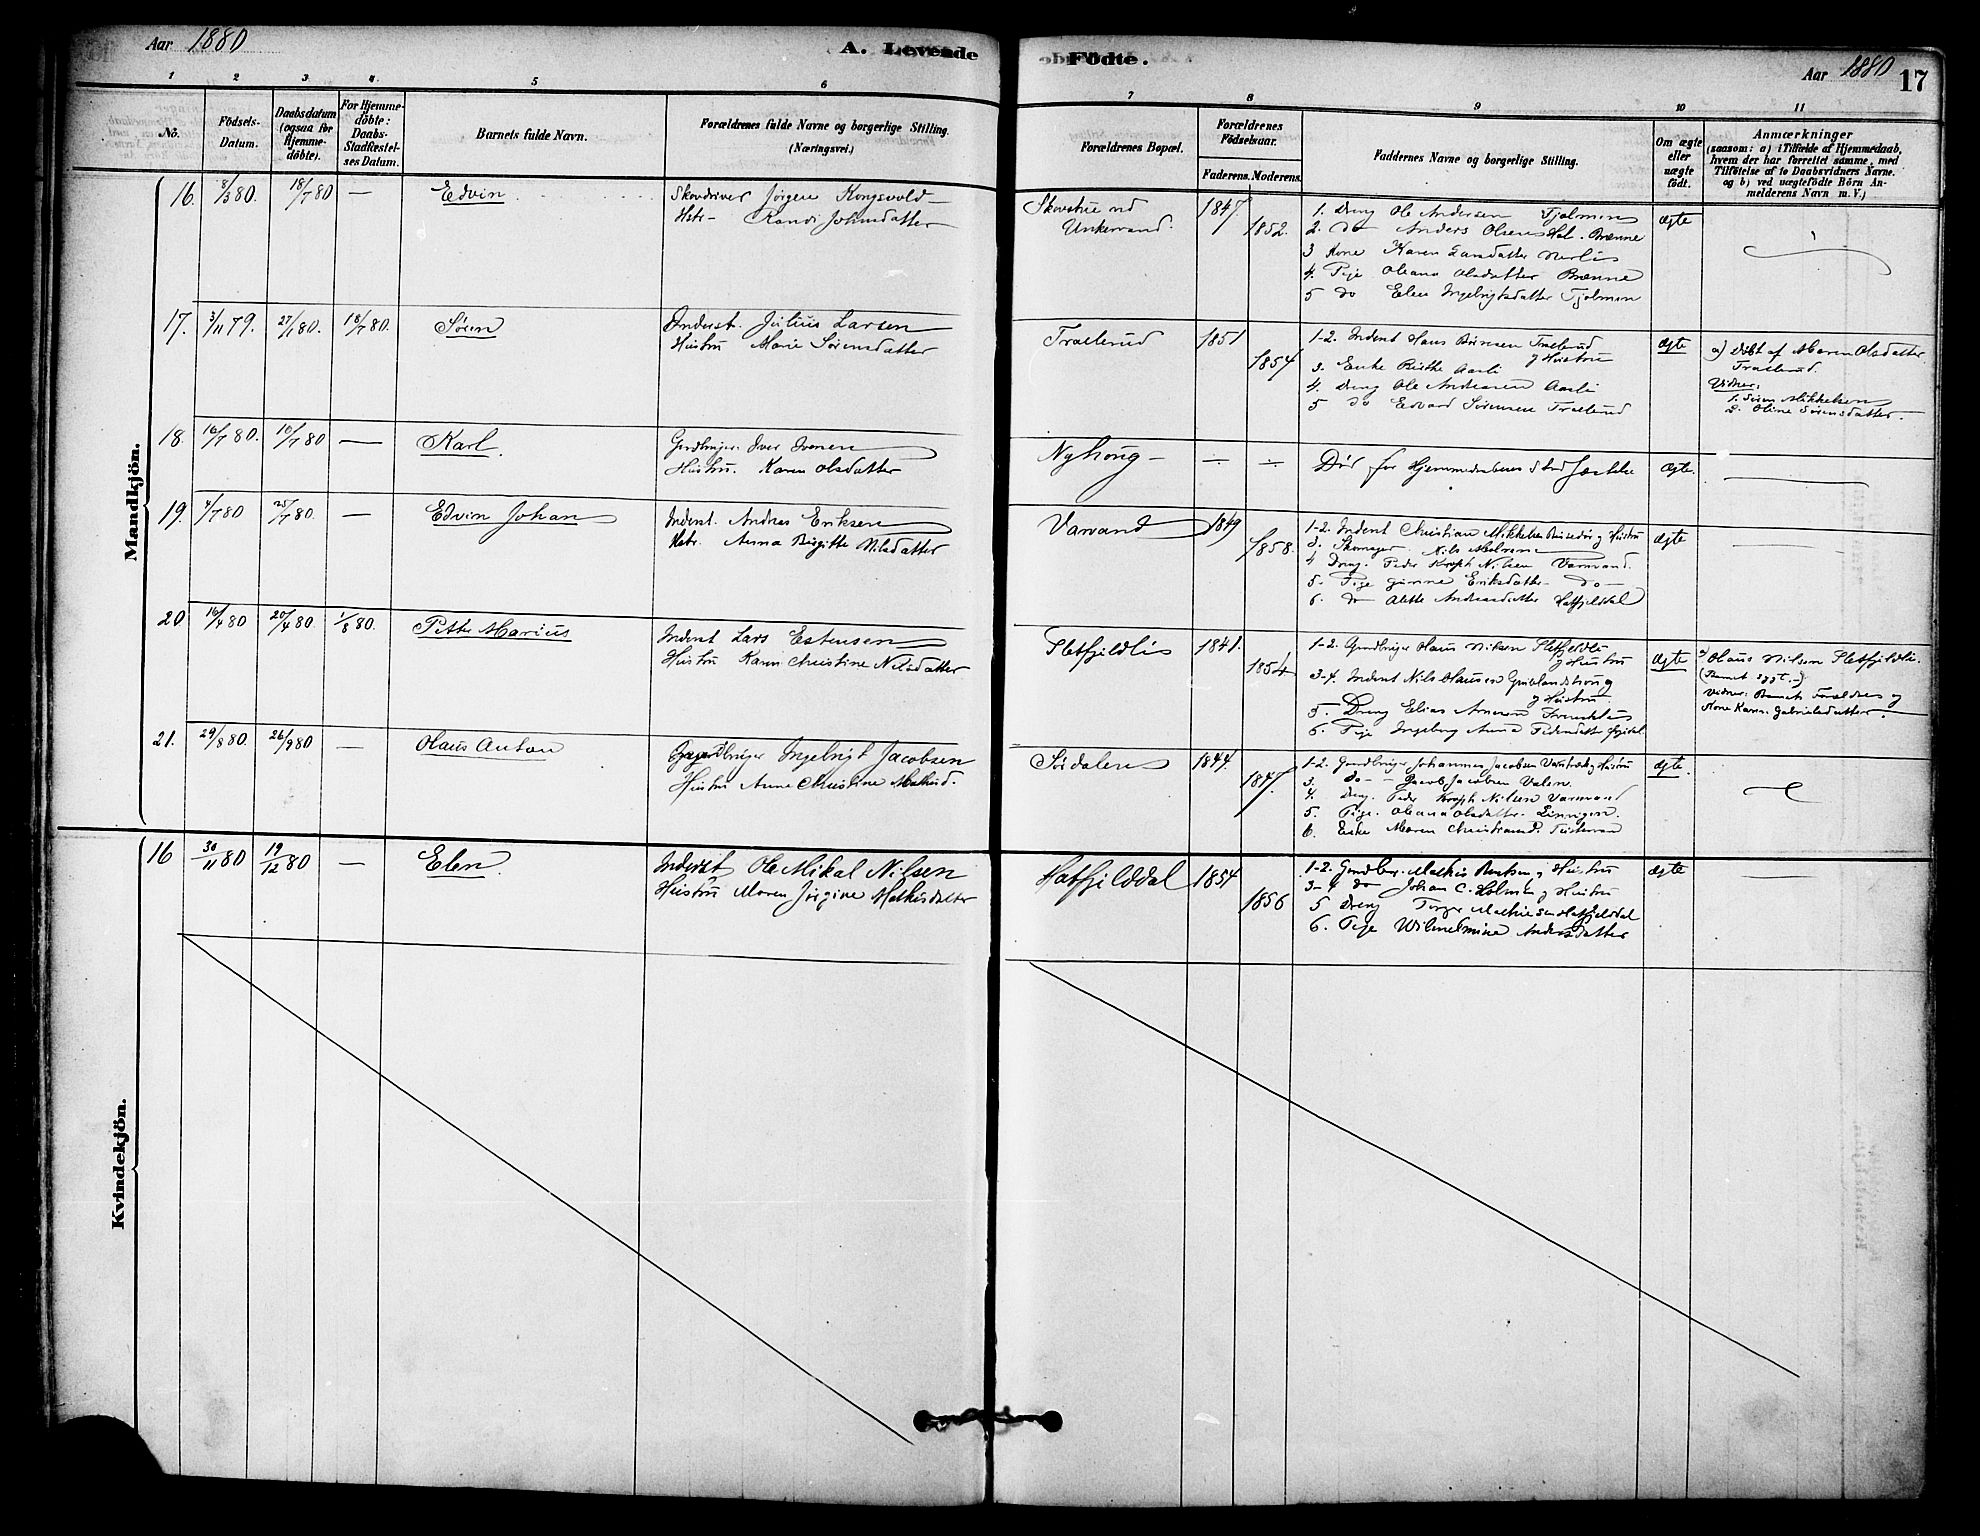 Aar 1880
A. Levende
Födte.
Aar 1880
17
1 2 3 4 5 6 7 8 9 10 11
No.
Födsels-
Datum.
Daabsdatum
(ogsaa for
Hjemme-
döbte).
For Hjemme-
döbte:
Daabs-
Stadfæstel-
ses Datum.
Barnets fulde Navn.
Forældrenes fulde Navne og borgerlige Stilling.
(Næringsvei.)
Forældrenes Bopæl.
Forældrenes
Födselsaar.
Faderens. Moderens.
Faddernes Navne og borgerlige Stilling.
Om ægte
eller
uægte
födt.
Anmærkninger
(saasom: a) i Tilfælde af Hjemmedaab,
hvem der har forrettet samme, med
Tilföielse af to Daabsvidners Navne.
og b) ved uægtefödte Börn An-
melderens Navn m. V.)
Mandkjön.
16. 8/3 80. 18/7 80 — Edvin
Jörgen Kongsvold
Randi Johnsdatter
Unkervand.
1847
1852.
1. Dreng Ole Andersen Fjolmen
2. do Anders Olsen Brænne
3 Kone Karen Larsdatter
4. Pige Oleana Olsdatter Brænne
5 do Elen Ingebrigtsdatter Fjolmen
ægte
17. 3/11 79. 27/1 80. 18/7 80. Sören
Inderst. Julius Larsen
Hustru Marie Sörensdatter
Trælerud
1851
1854
1-2. Inderst Hans Trælerud
og Hustru
3. Enke Aarli
4. Dreng Ole Andersen Aarli
5 do Edvard Sörensen Trælerud
ægte
a) Döbt af Maren Olsdatter
Trælerud.
Vidner:
1. Sören Mikkelsen
2. Oline Sörensdatter —
18. 16/7 80. 10/7 80 — Karl.
Grdbruger. Iver Iversen
Hustru. Karen Olsdatter
Nyhong —
ægte.
19. 4/7 80 25/7 80. — Edvin Johan
Inderst. Andreas Eriksen
Hstr. Anna Birgitte Nilsdatter
Varvand
1849
1858.
1-2. Inderst Christian Mikkelsen og Hustru
3. Skomager. Nils
4 Dreng. Peder Kroph Nilsen Varnvand.
5. Pige Eriksdatter — do —
6. do Alette Andreasdatter Hatfjeldal
ægte
20 16/4 80 20/4 80 1/8 80. Petter Marius
Inderst Lars Estensen
Hustru Karen Christine Nilsdatter
Sletfjeldli
1841.
1854
1-2. Grundbruger Olaus Nilsen Sletfjeldli
og Hustru
3-4. Inderst Nils Olausen
og Hustru.
5. Dreng Elias Arnesen
6. Pige Ingeborg Anna Pedersdatter
ægte
a) Olaus Nilsen Sletfjeldli.
(Barnet sygt. —)
Vidner: Barnets Forældre og
Kone Karen Gabrielsdatter.
21. 29/8 80. 26/9 80 — Olaus Anton
Ingebrigt Jacobsen
Hustru Anne Christine
Sördalen
1844.
1847.
1-2. Grundbruger Johannes Jacobsen og Hustru
3. do — Jacob Jacobsen Valen.
4. Dreng. Peder Kroph Nilsen Varnvand
5. Pige. Oleana Olsdatter.
6. Enke Maren
ægte.
Kvindekjön.
16 30/11 80 19/12 80 — Elen.
Inderst Ole Mikal Nilsen
Hustru Maren Jörgine Mathisdatter
Hatfjelddal
1854
1856
1-2. Grundbr. Mathis og Hustru
3-4 do Johan C. Holm og Hustru
5 Dreng Mathiesen Hatfjelddal
6. Pige Wilhelmine Andersdatter
ægte